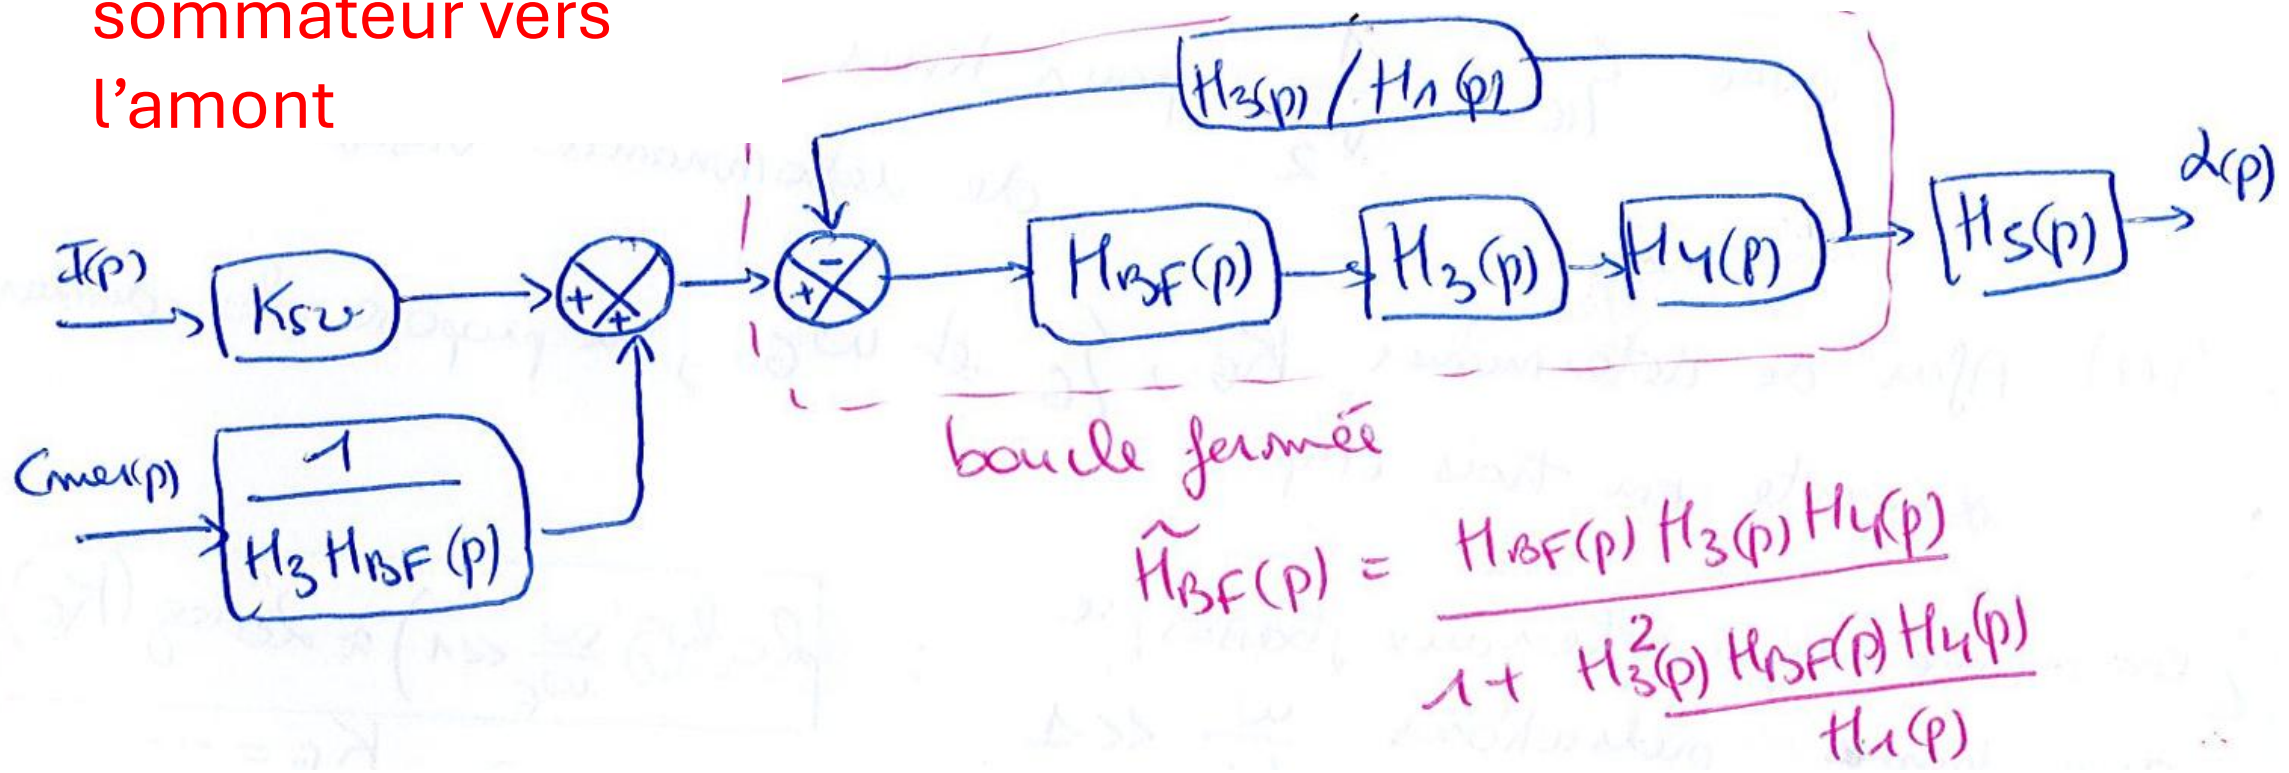 sommateur vers
l’amont
H3(p) / H1(p)
α(p)
I(p)
Ksv
+
+
-
+
HBF(p)
H3(p)
H4(p)
H5(p)
Cmer(p)
1
H3 HBF(p)
boucle fermée
H̃BF(p) = HBF(p) H3(p) H4(p)
1 + H3²(p) HBF(p) H4(p)
H1(p)